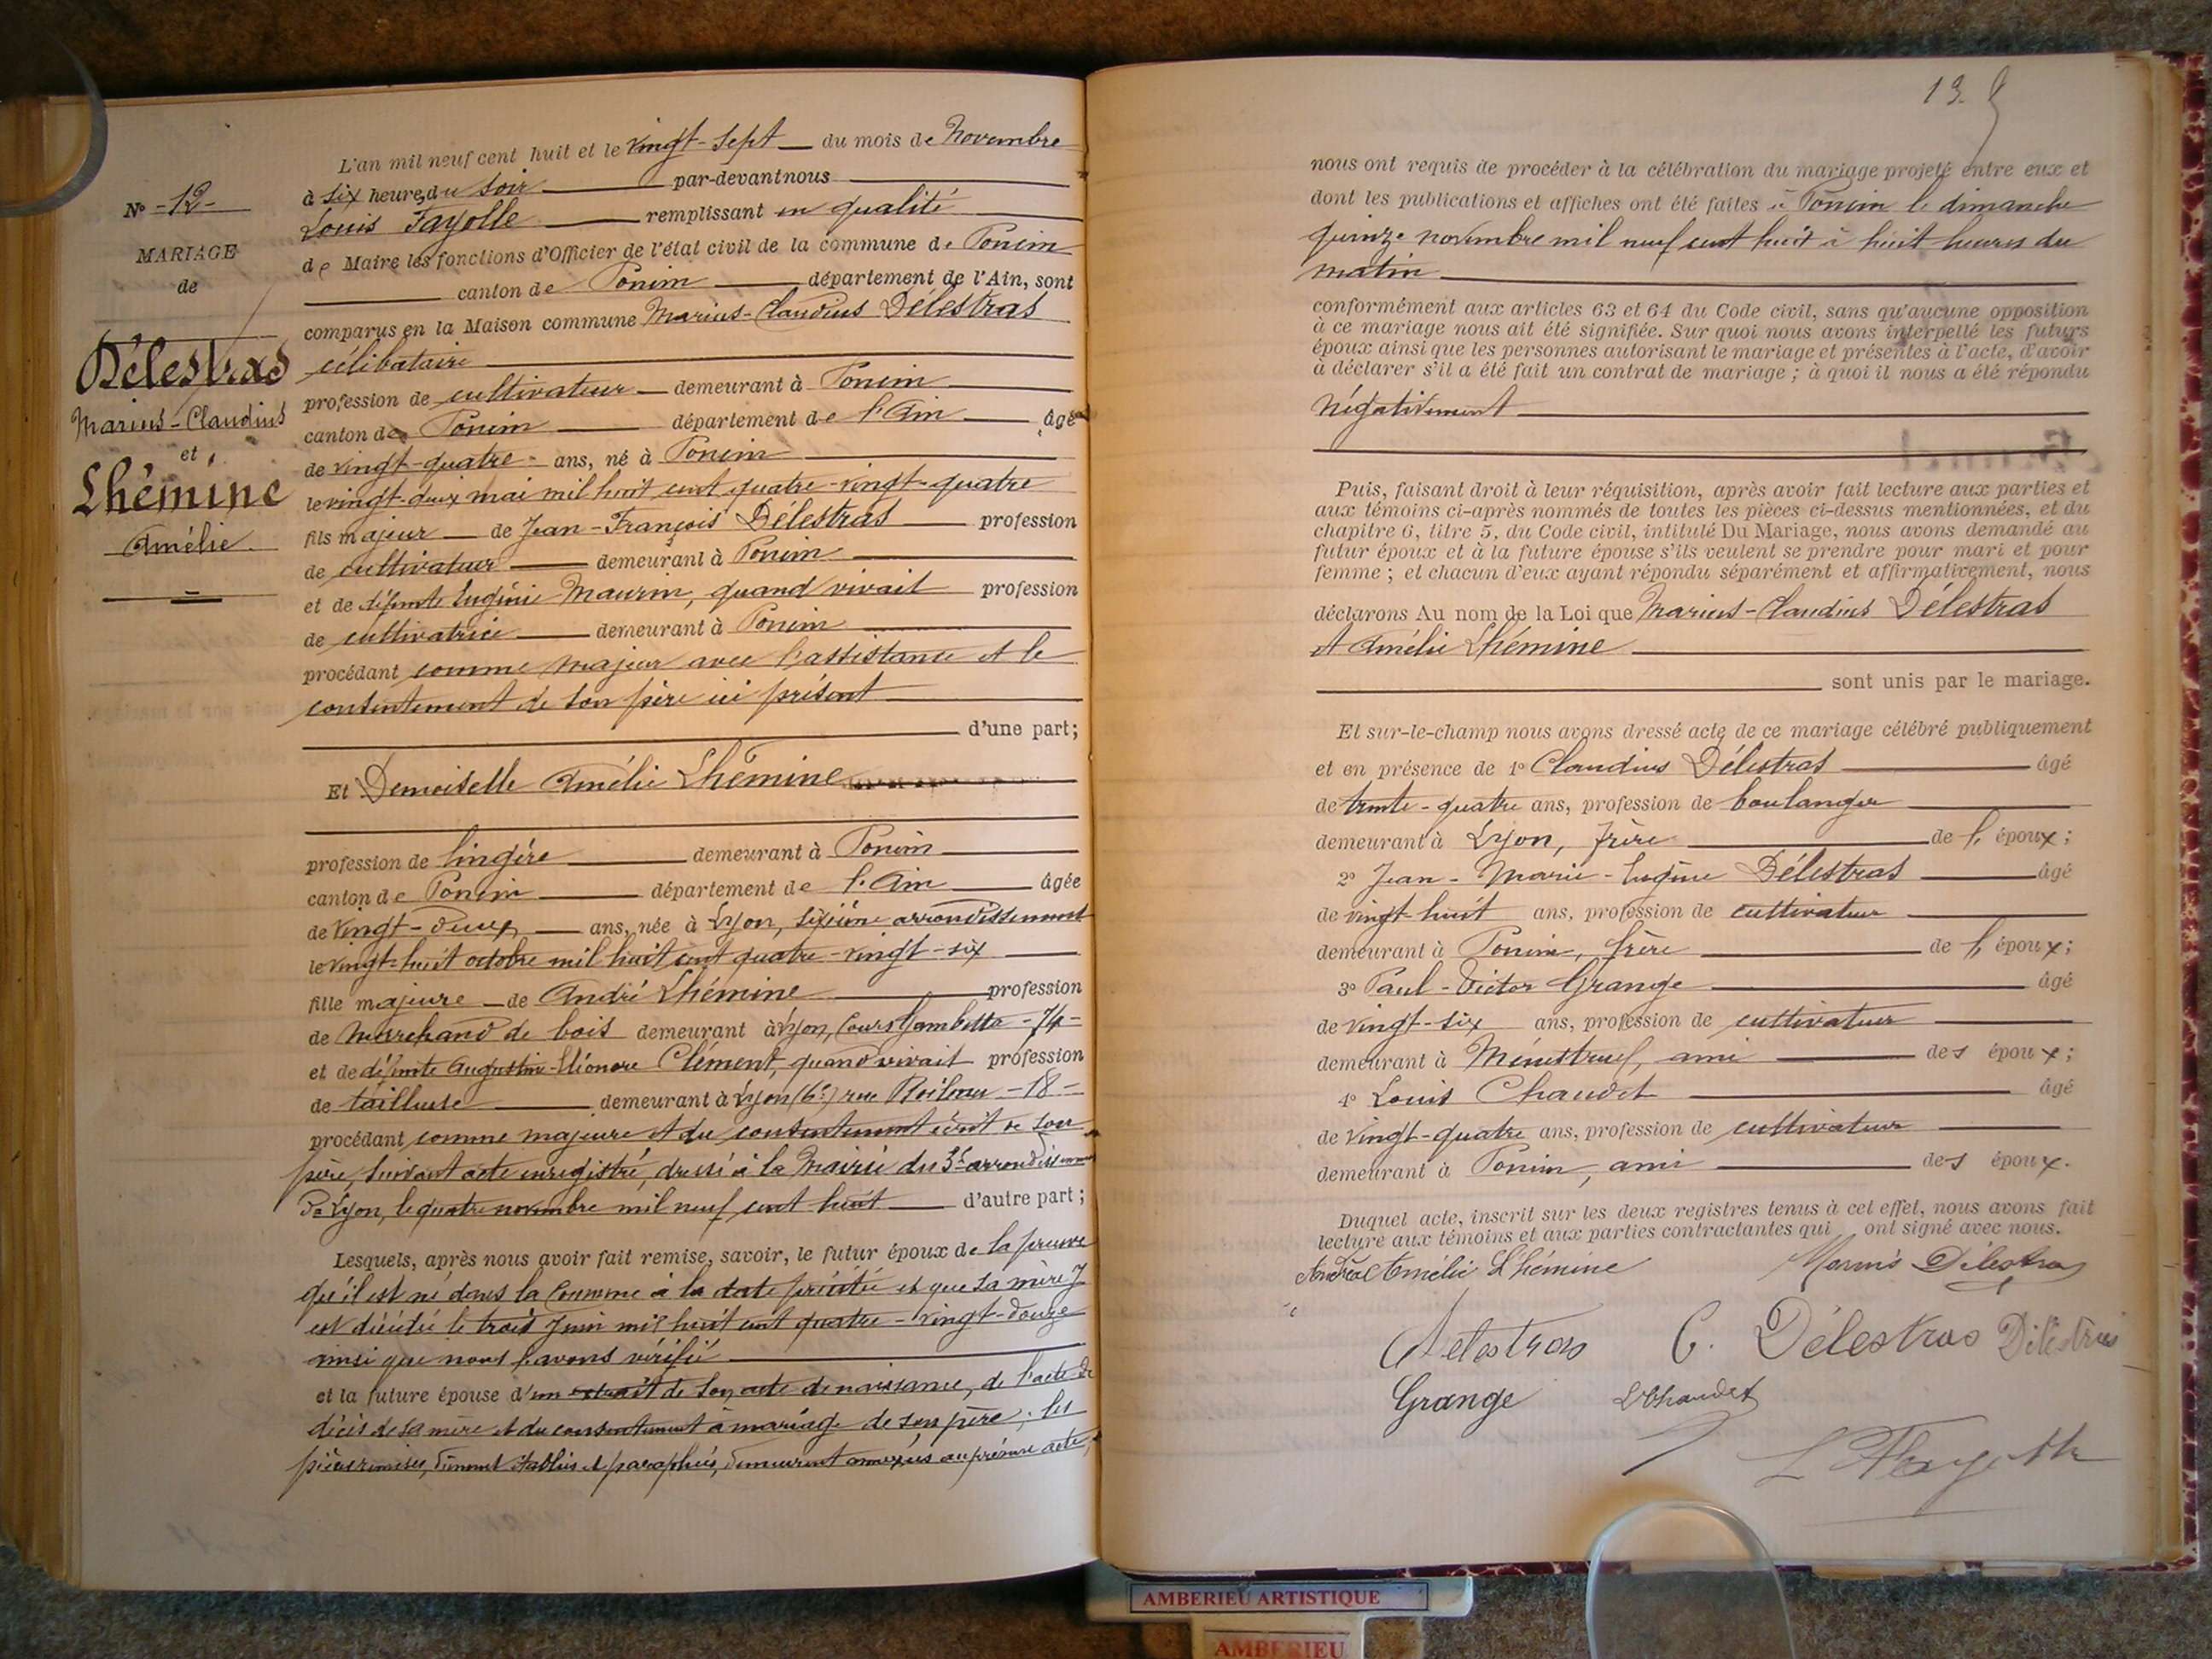 N° -12-
MARIAGE
de
Délestras
Marius-Claudius
et
Lhémine
Amélie
L'an mil neuf cent huit et le vingt-sept du mois de Novembre
à six heures du soir par-devant nous
Louis Fayolle remplissant en qualité
de Maire les fonctions d'Officier de l'état civil de la commune de Poncin
canton de Poncin département de l'Ain, sont
comparus en la Maison commune Marius-Claudius Délestras
célibataire
profession de cultivateur demeurant à Poncin
canton de Poncin département de l'Ain âgé
de vingt-quatre ans, né à Poncin
le vingt-deux mai mil huit cent quatre-vingt-quatre
fils majeur de Jean-François Délestras profession
de cultivateur demeurant à Poncin
et de défunte Eugénie Maurin, quand vivait profession
de cultivatrice demeurant à Poncin
procédant comme majeur avec l'assistance et le
consentement de son père ici présent
d'une part;
Et Demoiselle Amélie Lhémine
profession de lingère demeurant à Poncin
canton de Poncin département de l'Ain âgée
de vingt-deux ans, née à Lyon, sixième arrondissement
le vingt-huit octobre mil huit cent quatre-vingt-six
fille majeure de André Lhémine profession
de Marchand de bois demeurant à Lyon, Cours Gambetta -74-
et de défunte Augustine-Eléonore Clément, quand vivait profession
de tailleuse demeurant à Lyon (6e) rue Boileau -18-
procédant comme majeure et du consentement écrit de son
père, suivant acte enregistré, dressé à la Mairie du 3e arrondissement
de Lyon, le quatre novembre mil neuf cent huit d'autre part;
Lesquels, après nous avoir fait remise, savoir, le futur époux de la preuve
qu'il est né dans la Commune à la date précitée et que sa mère y
est décédée le trois juin mil huit cent quatre-vingt-douze
ainsi que nous l'avons vérifié
et la future épouse d'un extrait de son acte de naissance, de l'acte de
décès de sa mère et du consentement à mariage de son père; les
pièces remises, dûment établies et paraphées, demeurent annexées au présent acte,
13.
nous ont requis de procéder à la célébration du mariage projeté entre eux et
dont les publications et affiches ont été faites à Poncin le dimanche
quinze novembre mil neuf cent huit à huit heures du
matin
conformément aux articles 63 et 64 du Code civil, sans qu'aucune opposition
à ce mariage nous ait été signifiée. Sur quoi nous avons interpellé les futurs
époux ainsi que les personnes autorisant le mariage et présentes à l'acte, d'avoir
à déclarer s'il a été fait un contrat de mariage; à quoi il nous a été répondu
négativement
Puis, faisant droit à leur réquisition, après avoir fait lecture aux parties et
aux témoins ci-après nommés de toutes les pièces ci-dessus mentionnées, et du
chapitre 6, titre 5, du Code civil, intitulé Du Mariage, nous avons demandé au
futur époux et à la future épouse s'ils veulent se prendre pour mari et pour
femme; et chacun d'eux ayant répondu séparément et affirmativement, nous
déclarons Au nom de la Loi que Marius-Claudius Délestras
et Amélie Lhémine
sont unis par le mariage.
Et sur-le-champ nous avons dressé acte de ce mariage célébré publiquement
et en présence de 1° Claudius Délestras âgé
de trente-quatre ans, profession de boulanger
demeurant à Lyon, frère de l'époux;
2° Jean-Marie-Eugène Délestras âgé
de vingt-huit ans, profession de cultivateur
demeurant à Poncin, frère de l'époux;
3° Paul-Victor Grange âgé
de vingt-six ans, profession de cultivateur
demeurant à Ménestruel, ami des époux;
4° Louis Chaudet âgé
de vingt-quatre ans, profession de cultivateur
demeurant à Poncin, ami des époux.
Duquel acte, inscrit sur les deux registres tenus à cet effet, nous avons fait
lecture aux témoins et aux parties contractantes qui ont signé avec nous.
Amélie Lhémine Marius Délestras
Delestras C. Délestras Délestras
Grange L Chaudet
L Fayolle
AMBERIEU ARTISTIQUE
AMBERIEU